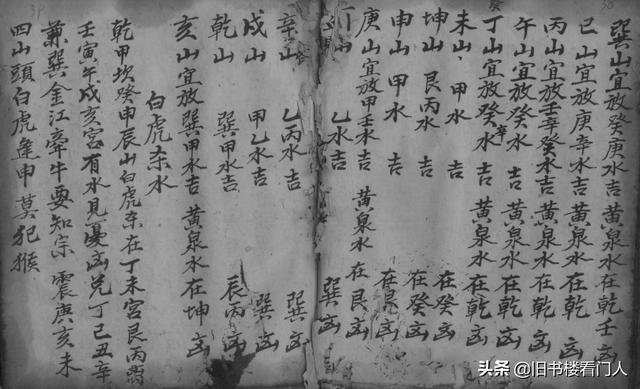 巽山宜放癸庚水吉 黄泉水在乾壬凶
巳山宜放庚辛水吉 黄泉水在乾 凶
丙山宜放壬辛癸水吉 黄泉水在乾 凶
午山宜放癸水 吉 黄泉水在乾 凶
丁山宜放癸辛水吉 黄泉水在乾 凶
未山 甲水 吉 在癸 凶
坤山 艮丙水 吉 在癸 凶
申山 甲水 吉 在艮 凶
庚山宜放甲壬水吉 黄泉水在艮 凶
山 乙水吉 巽 凶
辛山 乙丙水吉 巽 凶
戌山 甲乙水吉 巽 凶
乾山 巽甲水吉 辰丙 凶
亥山宜放巽甲水吉 黄泉水在坤 凶
白虎杀水
乾甲坎癸申辰山白虎杀在丁未宫艮丙
壬寅午戌亥宫有水見憂凶兌丁巳丑辛
兼巽金江牵牛要知宗 震庚亥未
四山頭白虎逢申莫犯猴
头条 @旧书楼看门人